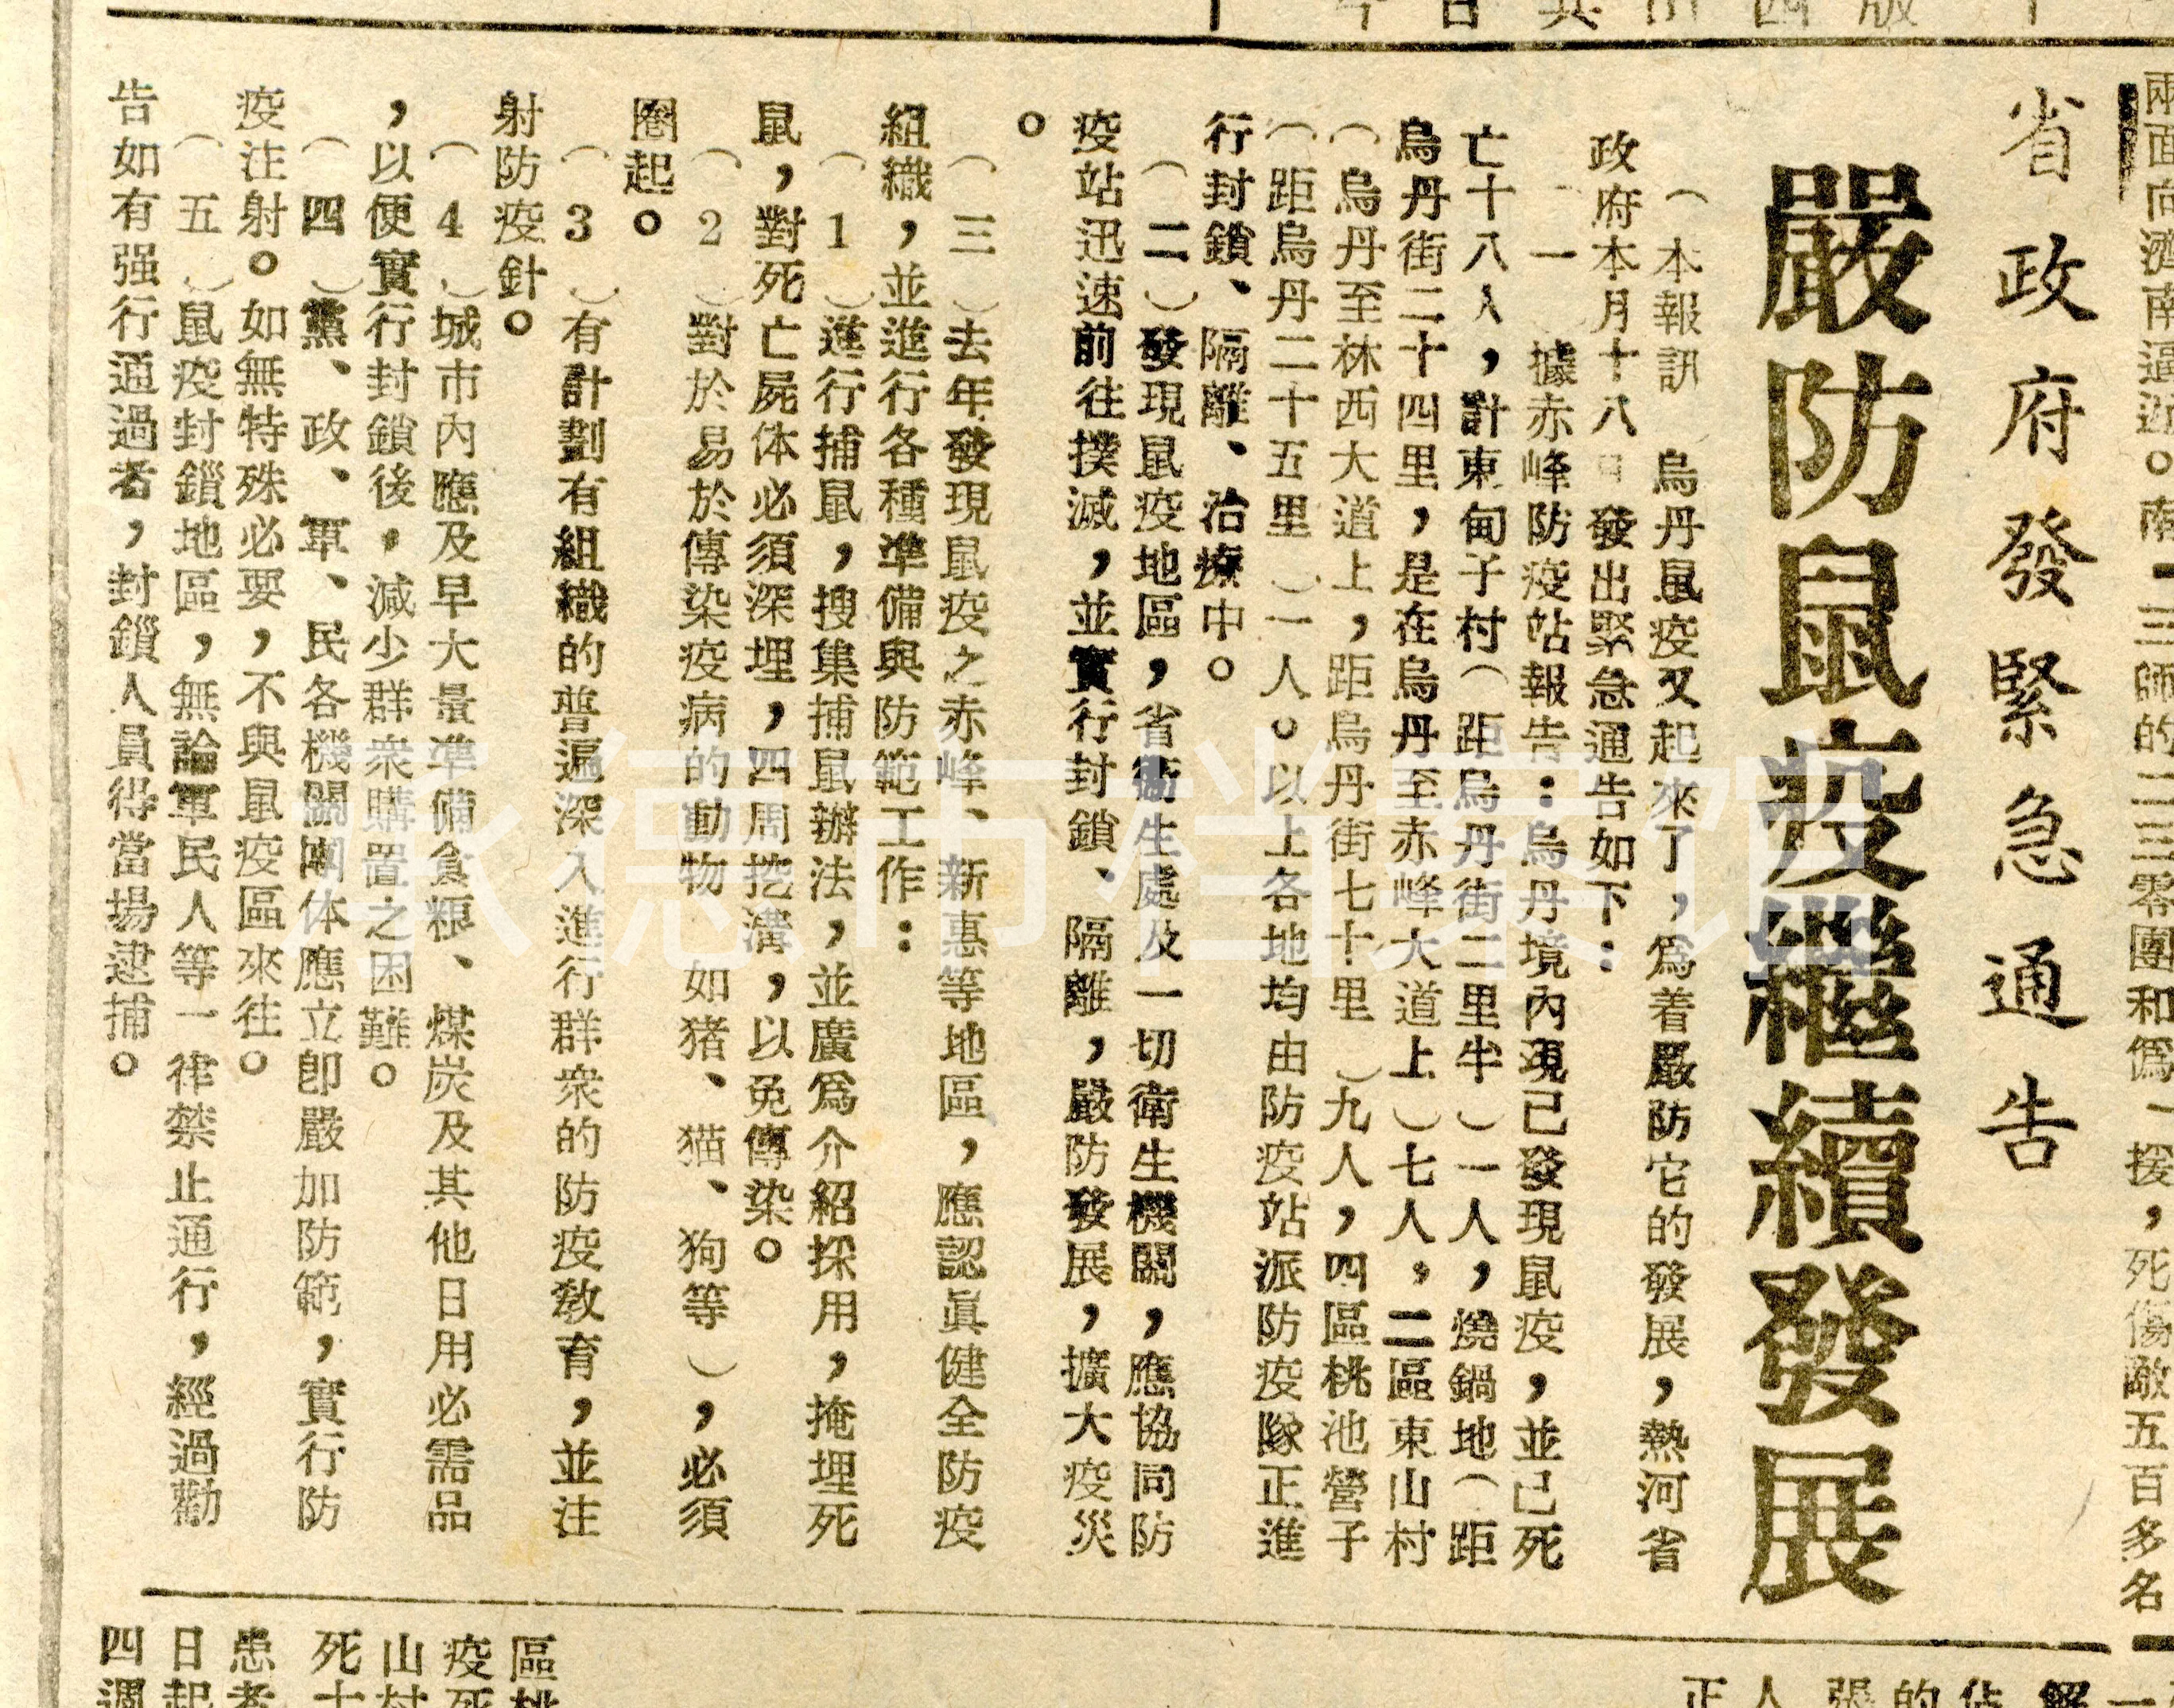 兩面向濟南逼近。南
三師的二三零團和僞
援，死傷敵五百多名
省政府發緊急通告
嚴防鼠疫繼續發展
（本報訊 烏丹鼠疫又起來了，爲着嚴防它的發展，熱河省
政府本月十八日發出緊急通告如下：
（一）據赤峰防疫站報告：烏丹境內現已發現鼠疫，並已死
亡十八人，計東甸子村（距烏丹街二里半）一人，燒鍋地（距
烏丹街二十四里，是在烏丹至赤峰大道上）七人，二區東山村
（烏丹至林西大道上，距烏丹街七十里）九人，四區桃池營子
（距烏丹二十五里）一人。以上各地均由防疫站派防疫隊正進
行封鎖、隔離、治療中。
（二）發現鼠疫地區，省衞生處及一切衛生機關，應協同防
疫站迅速前往撲滅，並實行封鎖、隔離，嚴防發展，擴大疫災
。
（三）去年發現鼠疫之赤峰、新惠等地區，應認眞健全防疫
組織，並進行各種準備與防範工作：
（1）進行捕鼠，搜集捕鼠辦法，並廣爲介紹採用，掩埋死
鼠，對死亡屍体必須深埋，四周挖溝，以免傳染。
（2）對於易於傳染疫病的動物 如猪、猫、狗等），必須
圈起。
（3）有計劃有組織的普遍深入進行群衆的防疫教育，並注
射防疫針。
（4）城市內應及早大量準備食糧、煤炭及其他日用必需品
，以便實行封鎖後，減少群衆購置之困難。
（四）黨、政、軍、民各機關團体應立卽嚴加防範，實行防
疫注射。如無特殊必要，不與鼠疫區來往。
（五）鼠疫封鎖地區，無論軍民人等一律禁止通行，經過勸
告如有强行通過者，封鎖人員得當場逮捕。
區桃
疫死
山村
死十
患者
日起
四週
承德市档案馆